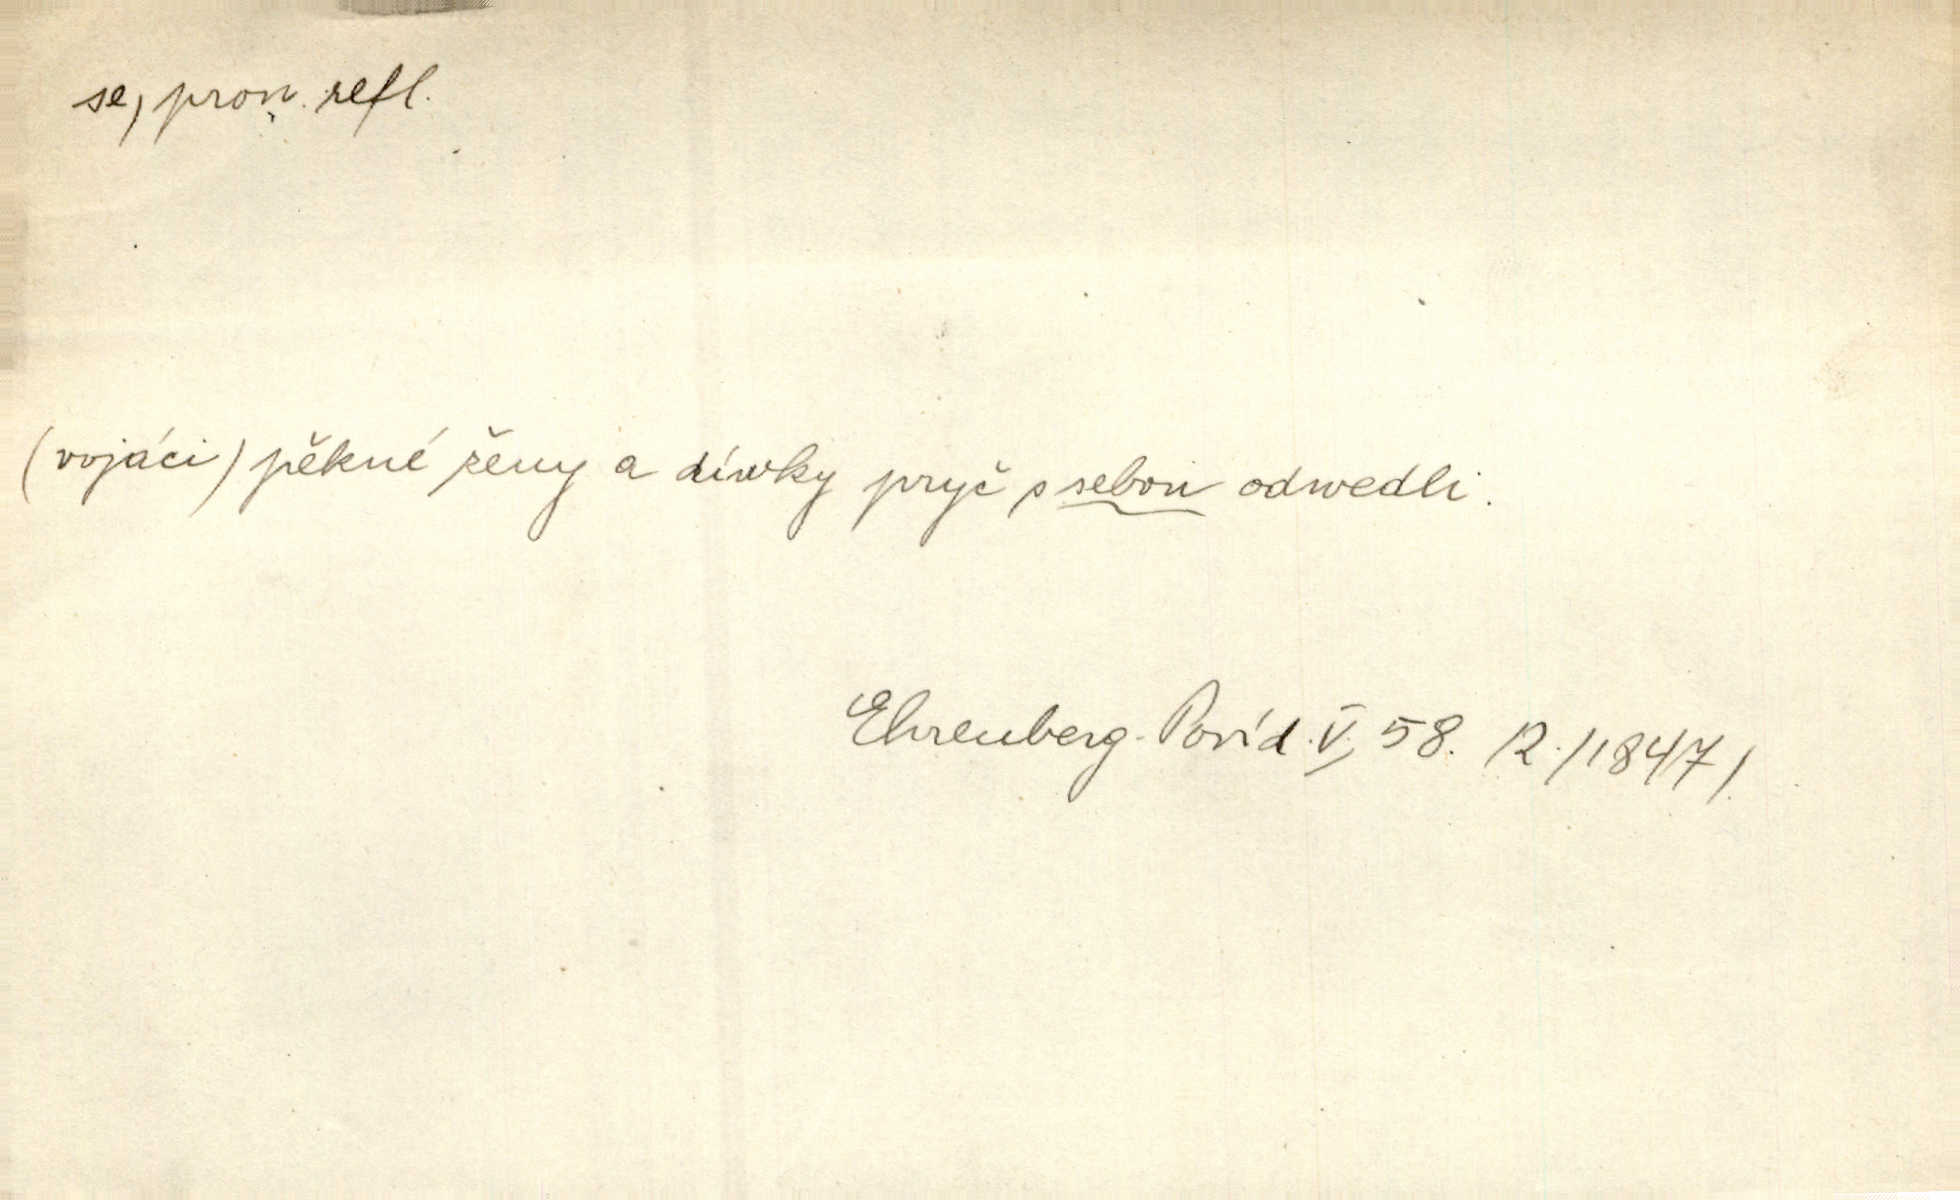 se, pron. refl.
(vojáci) pěkné ženy a díwky pryč s sebou odwedli.
Ehrenberg. Povíd. V, 58. R. /1847/.